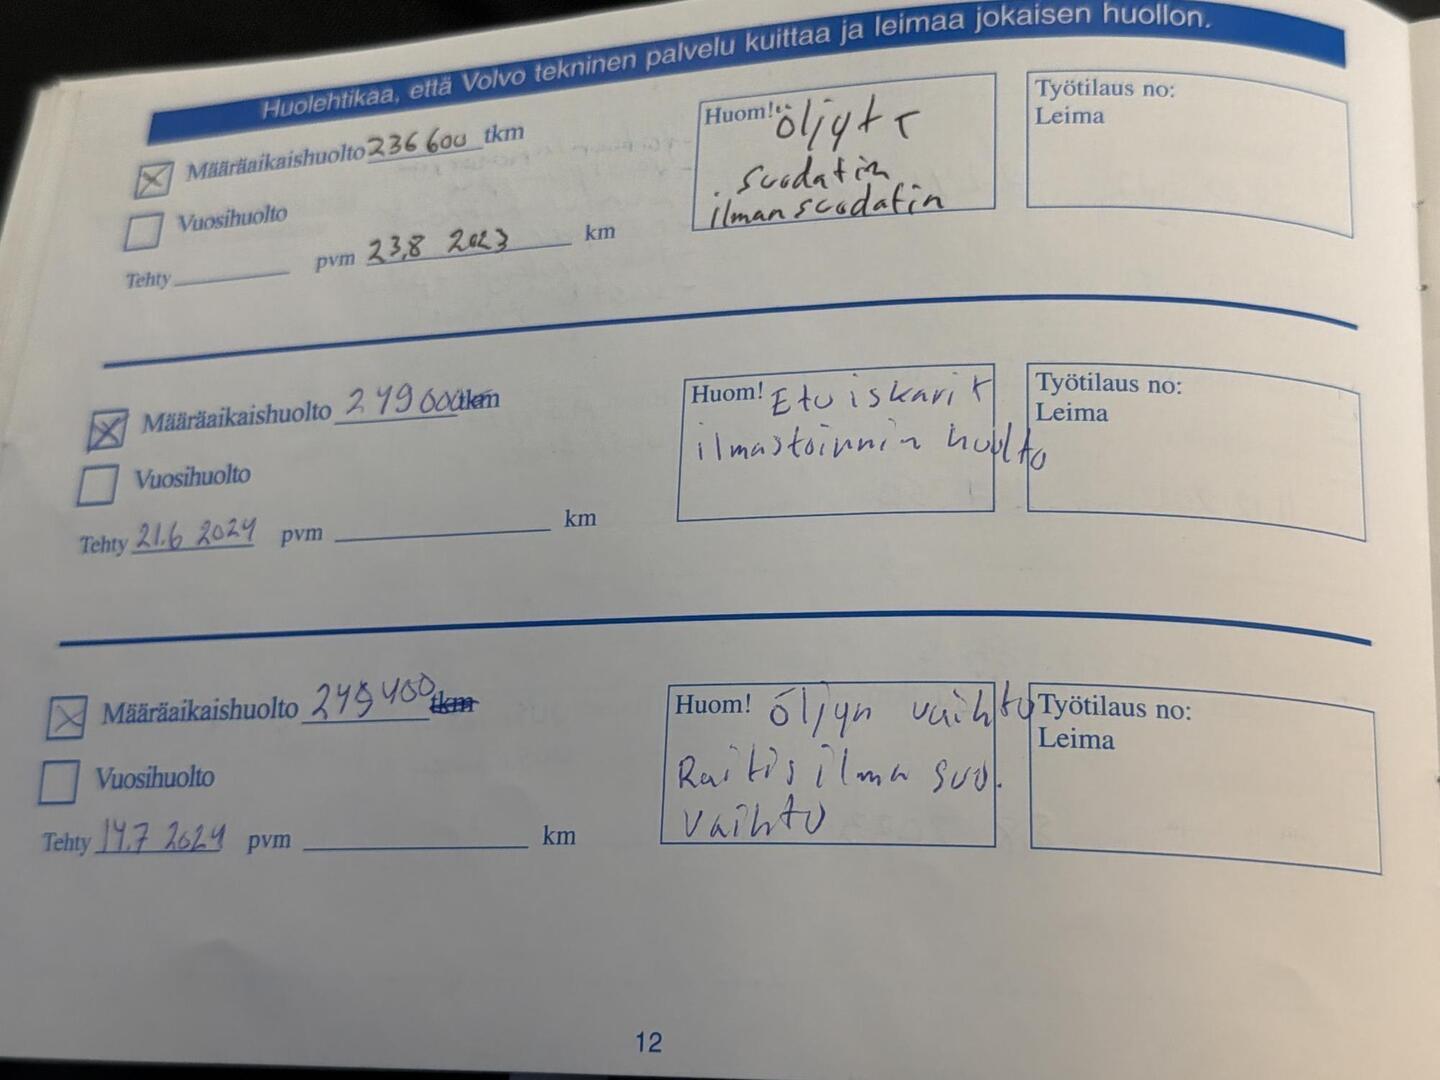 Huolehtikaa, että Volvo tekninen palvelu kuittaa ja leimaa jokaisen huollon.
Määräaikaishuolto 236 600 tkm
Vuosihuolto
Tehty pvm 23,8 2023 km
Huom! öljyt
suodatin
ilmansuodatin
Työtilaus no:
Leima
Määräaikaishuolto 249 000 tkm
Vuosihuolto
Tehty 21.6 2024 pvm km
Huom! Etu iskarit
ilmastoinnin huolto
Työtilaus no:
Leima
Määräaikaishuolto 249 400 tkm
Vuosihuolto
Tehty 14.7 2024 pvm km
Huom! öljyn vaihto
Raitis ilma suo.
vaihto
Työtilaus no:
Leima
12